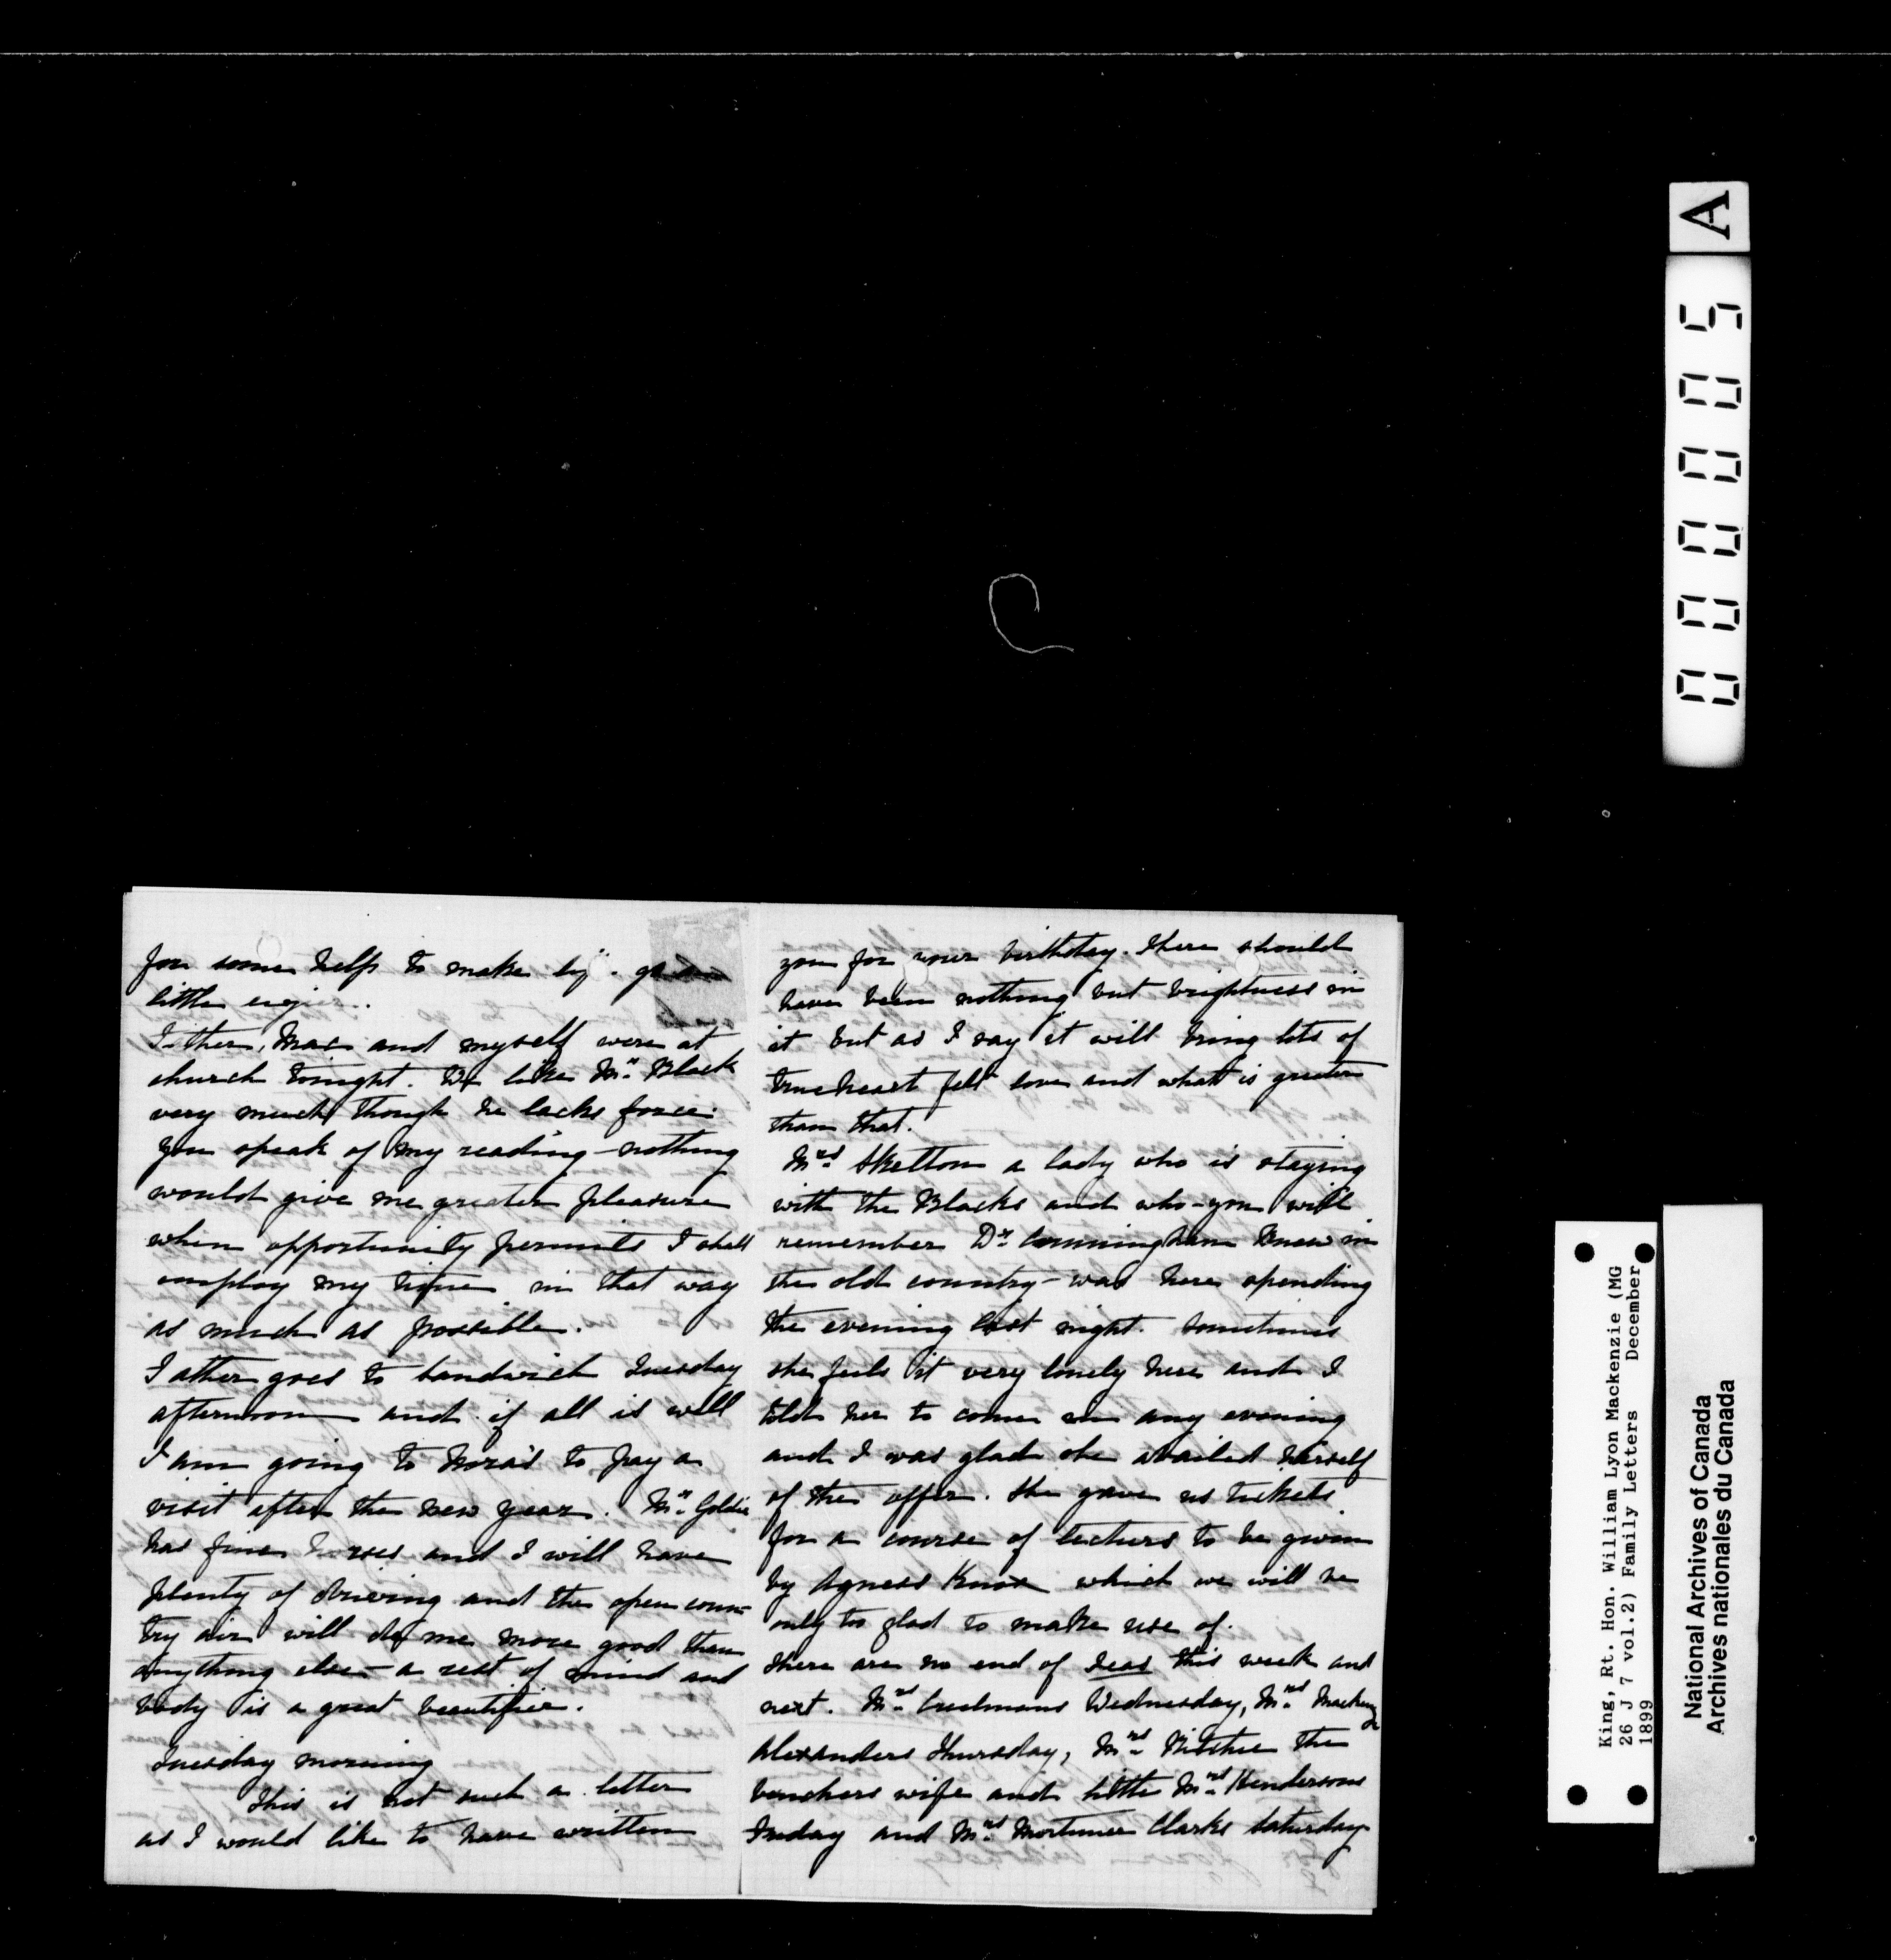 for some help to make
little
Father, Max and myself were at
church tonight. We like Mr. Black
very much though he lacks force.
You speak of my reading - nothing
would give me greater pleasure
when opportunity permits I shall
employ my time in that way
as much as possible.
Father goes to Sandwich Tuesday
afternoon and if all is well
I am going to Nora's to pay a
visit after the new year. Mr. Goldie
has fine horses and I will have
plenty of driving and the open coun-
try air will do me more good than
anything else - a rest of mind and
body is a great beautifier.
Tuesday morning
This is not such a letter
as I would like to have written
you for your birthday. There should
have been nothing but brightness in
it but as I say it will bring lots of
true heart felt love and what is greater
than that.
Mrs. Skelton a lady who is staying
with the Blacks and who - you will
remember Dr. Cunningham knew in
the old country - was here spending
the evening last night. Sometimes
she feels it very lonely here and I
told her to come in any evening
and I was glad she availed herself
of the offer. She gave us tickets
for a course of lectures to be given
by Agness Knox which we will be
only too glad to make use of.
There are no end of teas this week and
next. Mrs. Creelmans Wednesday, Mrs. Mackenzie
Alexanders Thursday, Mrs. the
wife and little Mrs. Hendersons
Friday and Mrs. Mortimer Clarks Saturday
A
000005
King, Rt. Hon. William Lyon Mackenzie (MG
26 J 7 vol.2) Family Letters December
1899
National Archives of Canada
Archives nationales du Canada